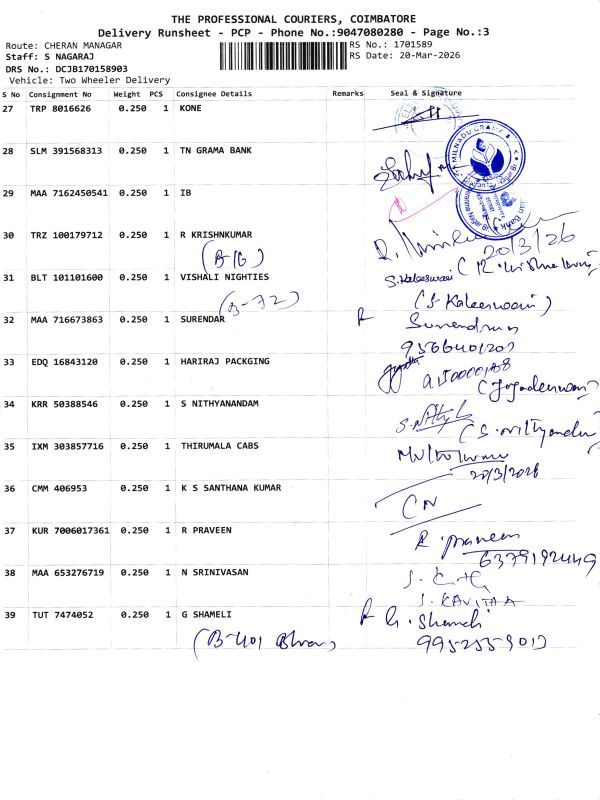 THE PROFESSIONAL COURIERS, COIMBATORE
Delivery Runsheet - PCP - Phone No.:9047080280 - Page No.:3
Route: CHERAN MANAGAR RS No.: 1701589
Staff: S NAGARAJ RS Date: 20-Mar-2026
DRS No.: DCJB170158903
Vehicle: Two Wheeler Delivery
S No Consignment No Weight PCS Consignee Details Remarks Seal & Signature
27 TRP 8016626 0.250 1 KONE
28 SLM 391568313 0.250 1 TN GRAMA BANK
29 MAA 7162450541 0.250 1 IB
30 TRZ 100179712 0.250 1 R KRISHNKUMAR
20/3/26
(B-16)
31 BLT 101101600 0.250 1 VISHALI NIGHTIES
S. Kaleeswari
(B-72) (S. Kaleeswari)
32 MAA 716673863 0.250 1 SURENDAR
33 EDQ 16843120 0.250 1 HARIRAJ PACKGING
34 KRR 50388546 0.250 1 S NITHYANANDAM
35 IXM 303857716 0.250 1 THIRUMALA CABS
20/3/2026
36 CMM 406953 0.250 1 K S SANTHANA KUMAR
37 KUR 7006017361 0.250 1 R PRAVEEN
R. praveen
6379192449
38 MAA 653276719 0.250 1 N SRINIVASAN
S. KAVITAA
39 TUT 7474052 0.250 1 G SHAMELI
(B-401